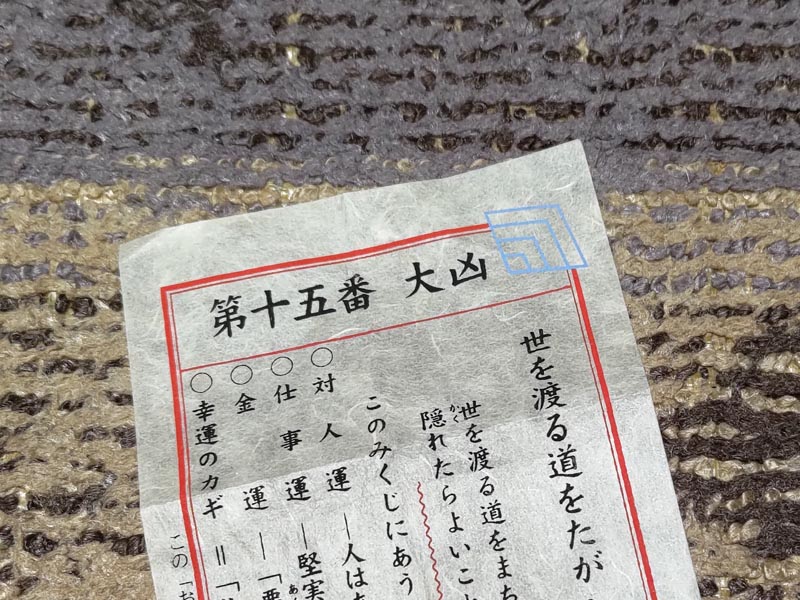 第十五番 大凶
世を渡る道をたが
世を渡る道をまち
隠れたらよいこと
このみくじにあう
○対人運―人は
○仕事運―堅実
○金運―「悪
○幸運のカギ＝「
この「お